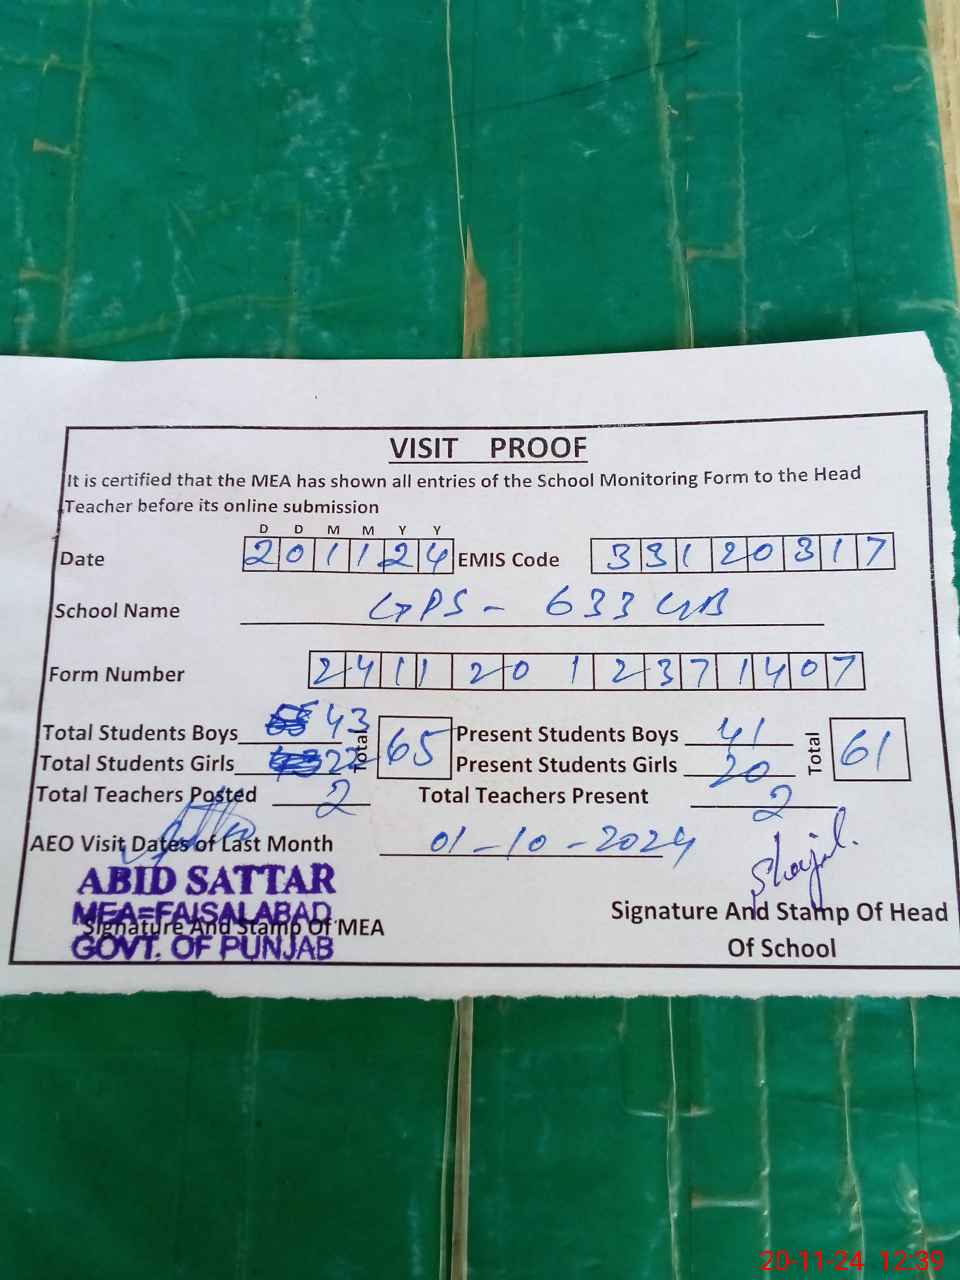 VISIT PROOF
It is certified that the MEA has shown all entries of the School Monitoring Form to the Head
Teacher before its online submission
D D M M Y Y
Date 201124 EMIS Code 33120317
School Name GPS - 633 GB
Form Number 24112012371407
Total Students Boys 43 Total 65 Present Students Boys 41 Total 61
Total Students Girls 22 Present Students Girls 20
Total Teachers Posted 2 Total Teachers Present 2
AEO Visit Dates of Last Month 01-10-2024
ABID SATTAR
MEA=FAISALABAD
Signature And Stamp Of MEA
GOVT. OF PUNJAB
Signature And Stamp Of Head
Of School
20-11-24 12:39